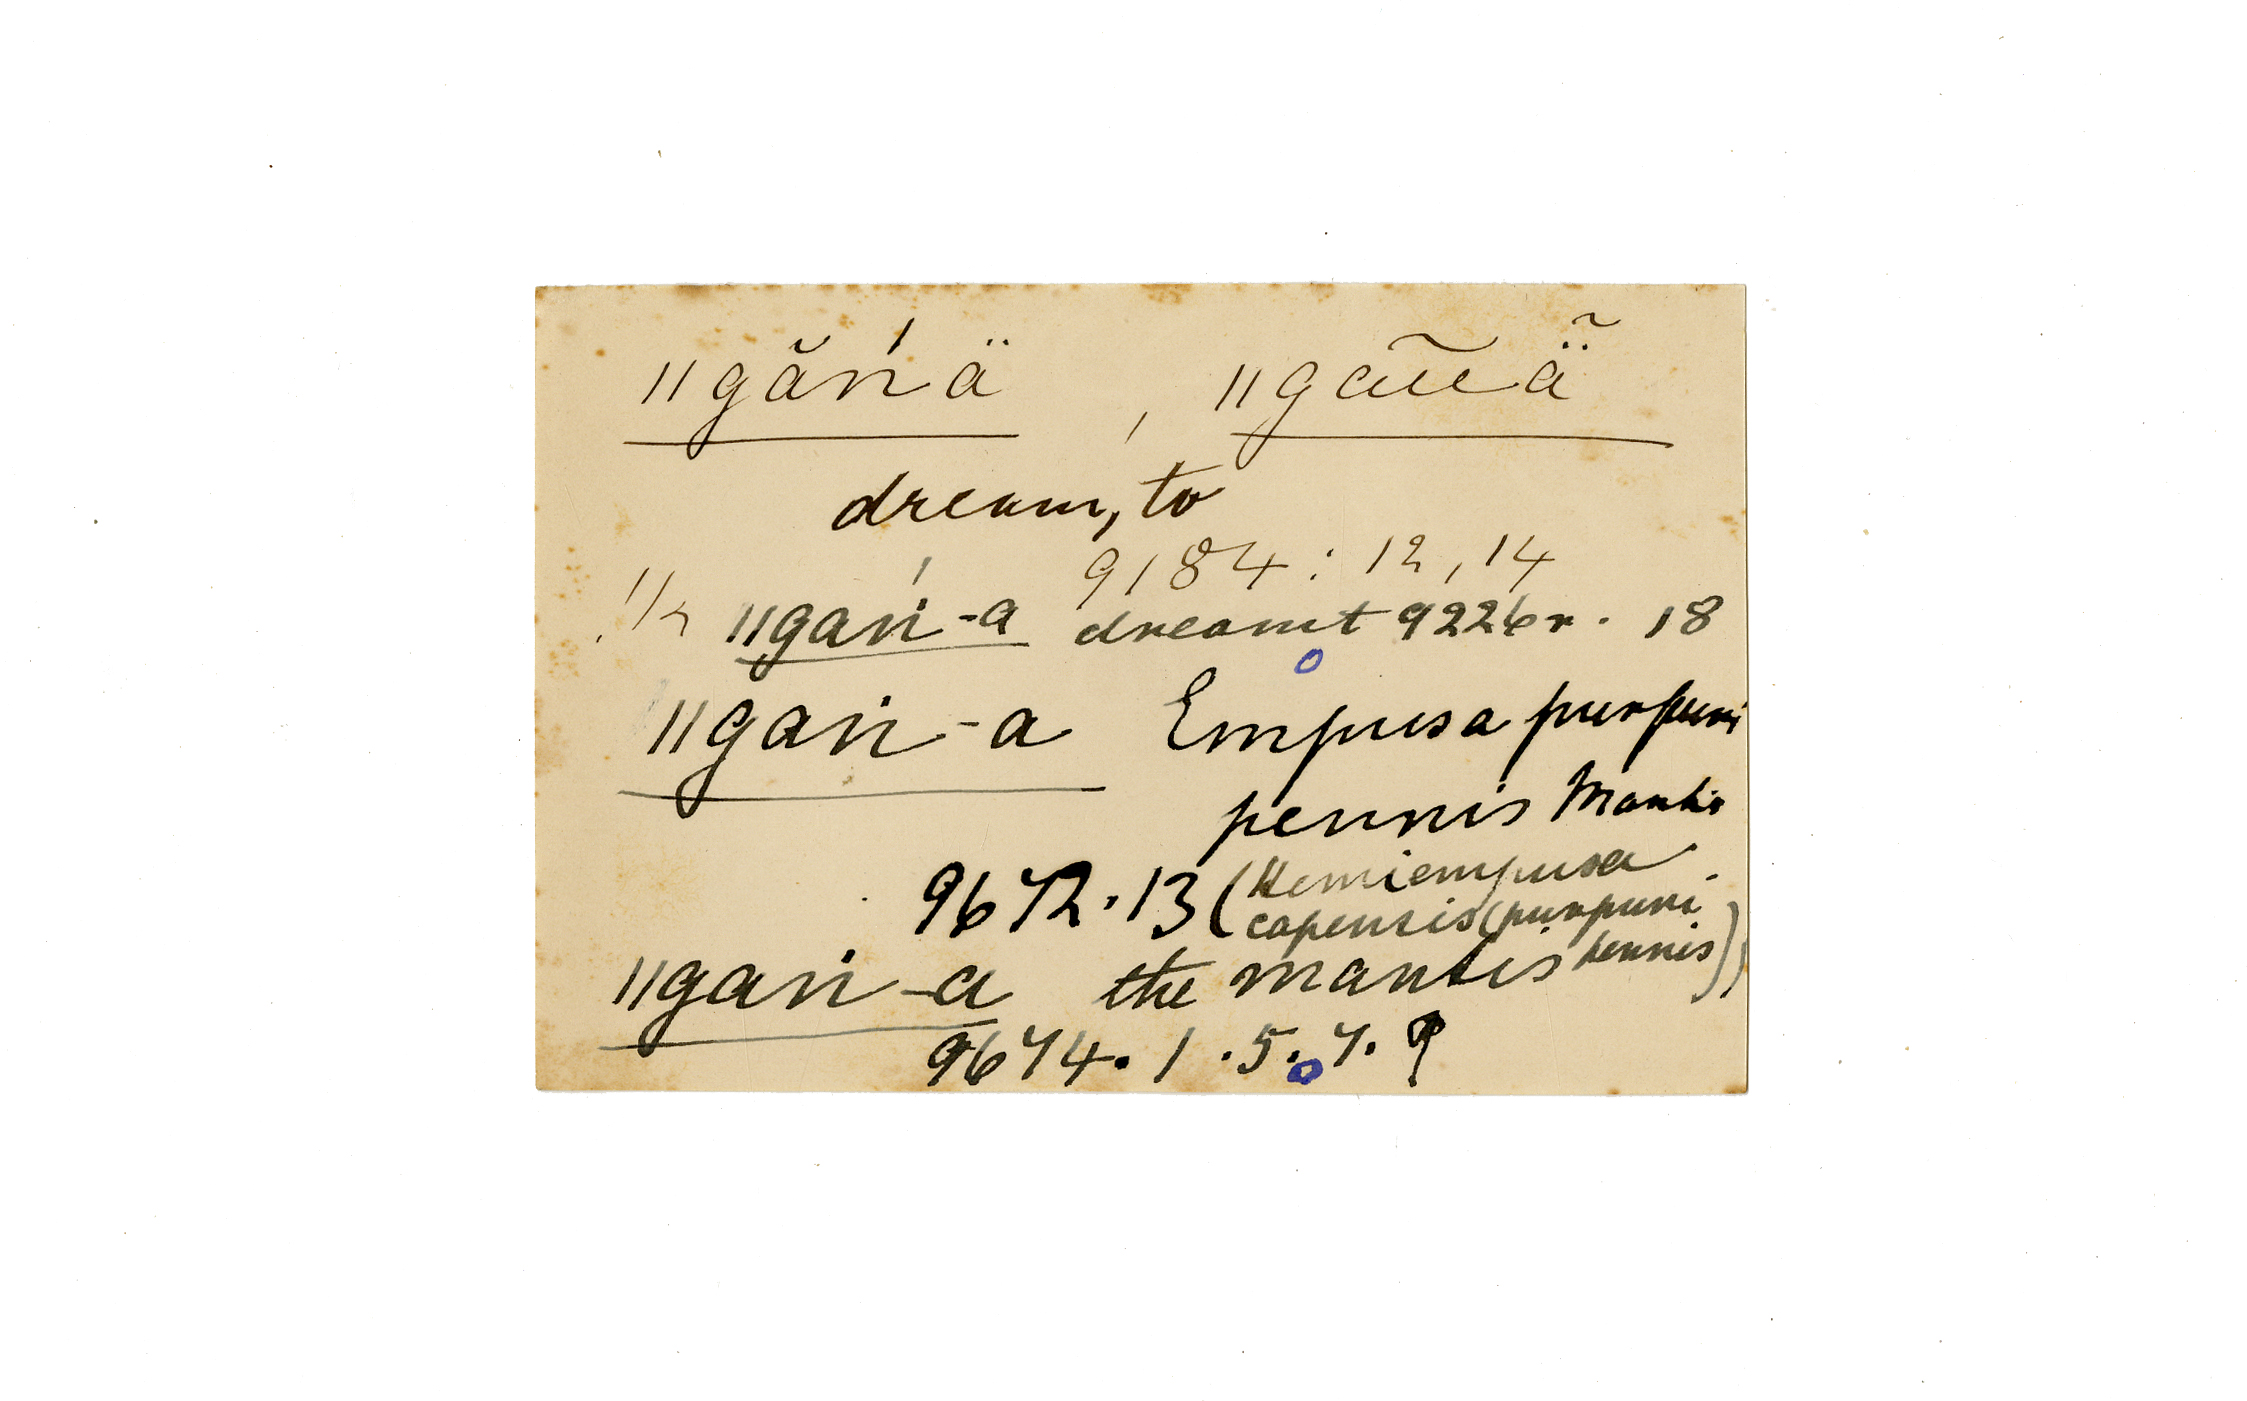 ǁgăṅ́ä , ǁgau͠ä̃
dream, to
9184 : 12, 14
ǁgaṅ́-a dreamt 9226r. 18
ǁgaṅ-a Empusa purpuri
pennis Mantis
9672.13 (Hemiempusa
capensis (purpuri
pennis))
ǁgaṅ-a the mantis
9674. 1 . 5. 7. 9